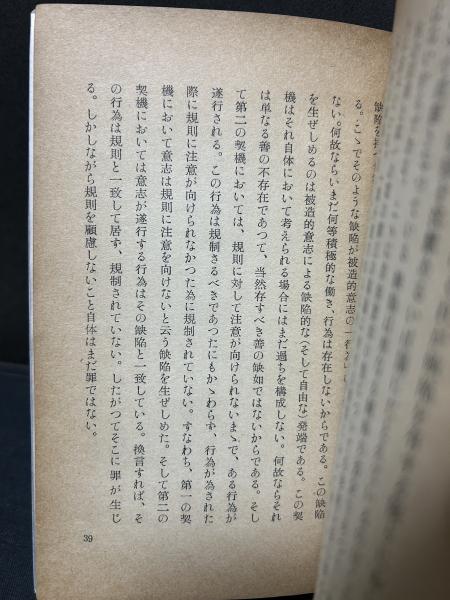 缺陥を
る。こゝでそのような缺陥が被造的意志の「行為」
ない。何故ならいまだ何等積極的な働き、行為は存在しないからである。この缺陥
を生ぜしめるのは被造的意志による缺陥的な(そして自由な)発端である。この契
機はそれ自体において考えられる場合にはまだ過ちを構成しない。何故ならそれ
は単なる善の不存在であつて、当然存すべき善の缺如ではないからである。そし
て第二の契機においては、規則に対して注意が向けられないまゝで、ある行為が
遂行される。この行為は規制さるべきであつたにもかゝわらず、行為が為された
際に規則に注意が向けられなかつた為に規制されていない。すなわち、第一の契
機において意志は規則に注意を向けないと云う缺陥を生ぜしめた。そして第二の
契機においては意志が遂行する行為はその缺陥と一致している。換言すれば、そ
の行為は規則と一致して居ず、規制されていない。したがつてそこに罪が生じ
る。しかしながら規則を顧慮しないこと自体はまだ罪ではない。
39